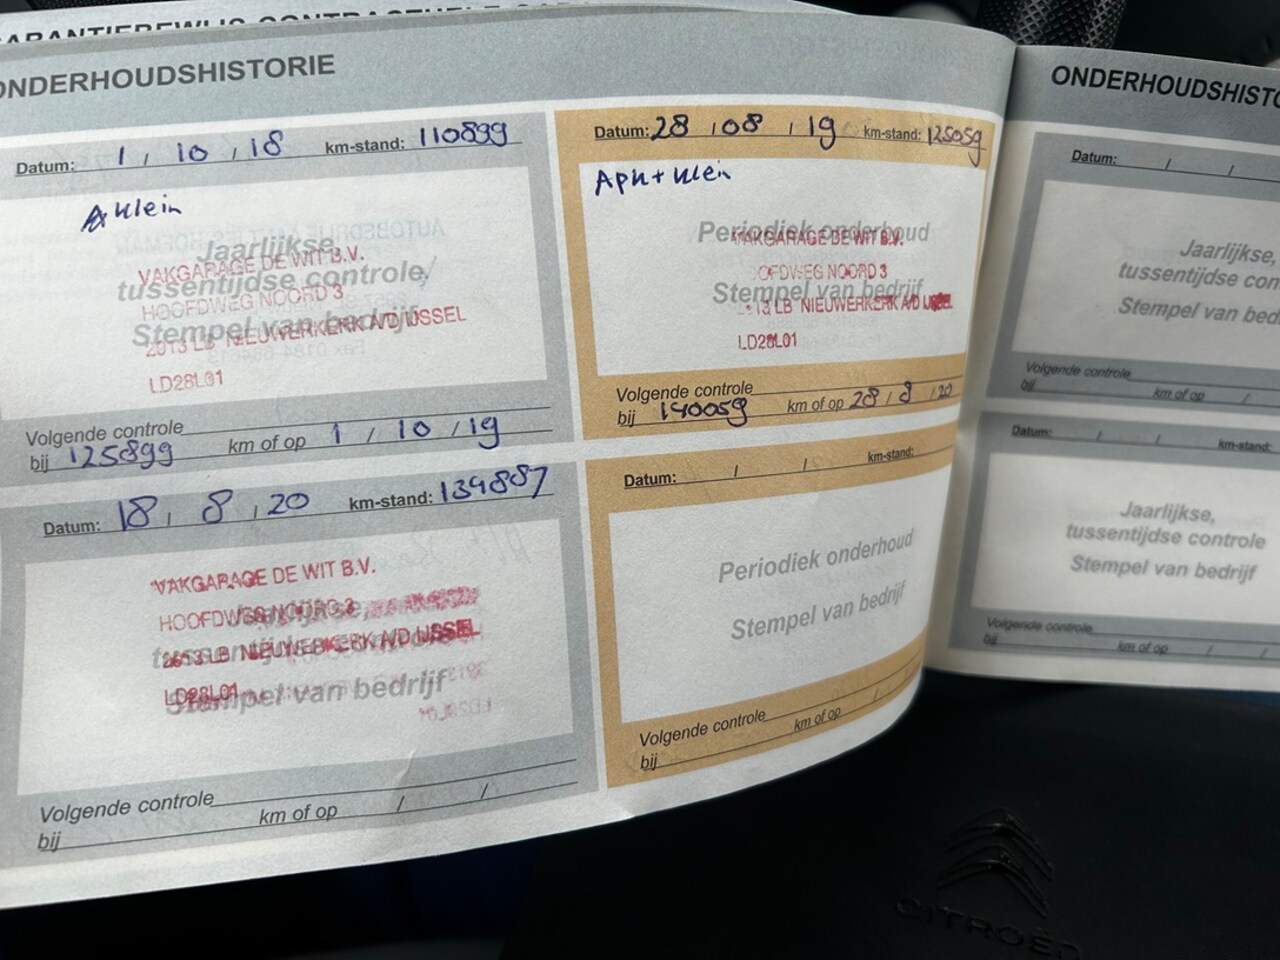 GARANTIEBEWIJS CONTRACTUELE
ONDERHOUDSHISTORIE
Datum: 1 / 10 / 18 km-stand: 110899
Klein
Jaarlijkse,
VAKGARAGE DE WIT B.V.
tussentijdse controle,
HOOFDWEG NOORD 3
Stempel van bedrijf
2913 LB NIEUWERKERK A/D IJSSEL
LD28L01
Volgende controle
bij 125899 km of op 1 / 10 / 19
Datum: 28 / 08 / 19 km-stand: 125059
Apk + Klein
Periodiek onderhoud
VAKGARAGE DE WIT B.V.
OFDWEG NOORD 3
Stempel van bedrijf
13 LB NIEUWERKERK A/D IJSSEL
LD28L01
Volgende controle
bij 140059 km of op 28 / 8 / 20
Datum: 18 / 8 / 20 km-stand: 134887
VAKGARAGE DE WIT B.V.
HOOFDWEG NOORD 3
2913 LB NIEUWERKERK A/D IJSSEL
LD28L01
Stempel van bedrijf
Volgende controle
bij km of op / /
Datum: / / km-stand:
Periodiek onderhoud
Stempel van bedrijf
Volgende controle
bij km of op /
ONDERHOUDSHISTO
Datum: / /
Jaarlijkse,
tussentijdse con
Stempel van bed
Volgende controle
bij km of op /
Datum: / / km-stand:
Jaarlijkse,
tussentijdse controle
Stempel van bedrijf
Volgende controle
bij km of op / /
CITROËN